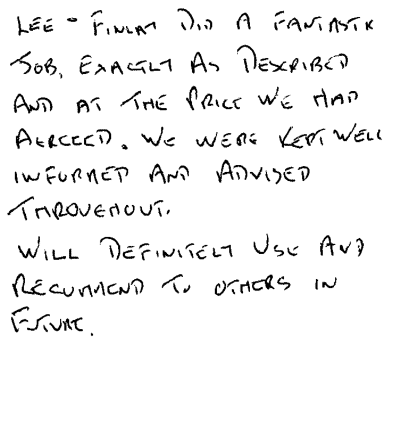 LEE - FINLAY DID A FANTASTIC
JOB, EXACTLY AS DESCRIBED
AND AT THE PRICE WE HAD
AGREED. WE WERE KEPT WELL
INFORMED AND ADVISED
THROUGHOUT.
WILL DEFINITELY USE AND
RECOMMEND TO OTHERS IN
FUTURE.